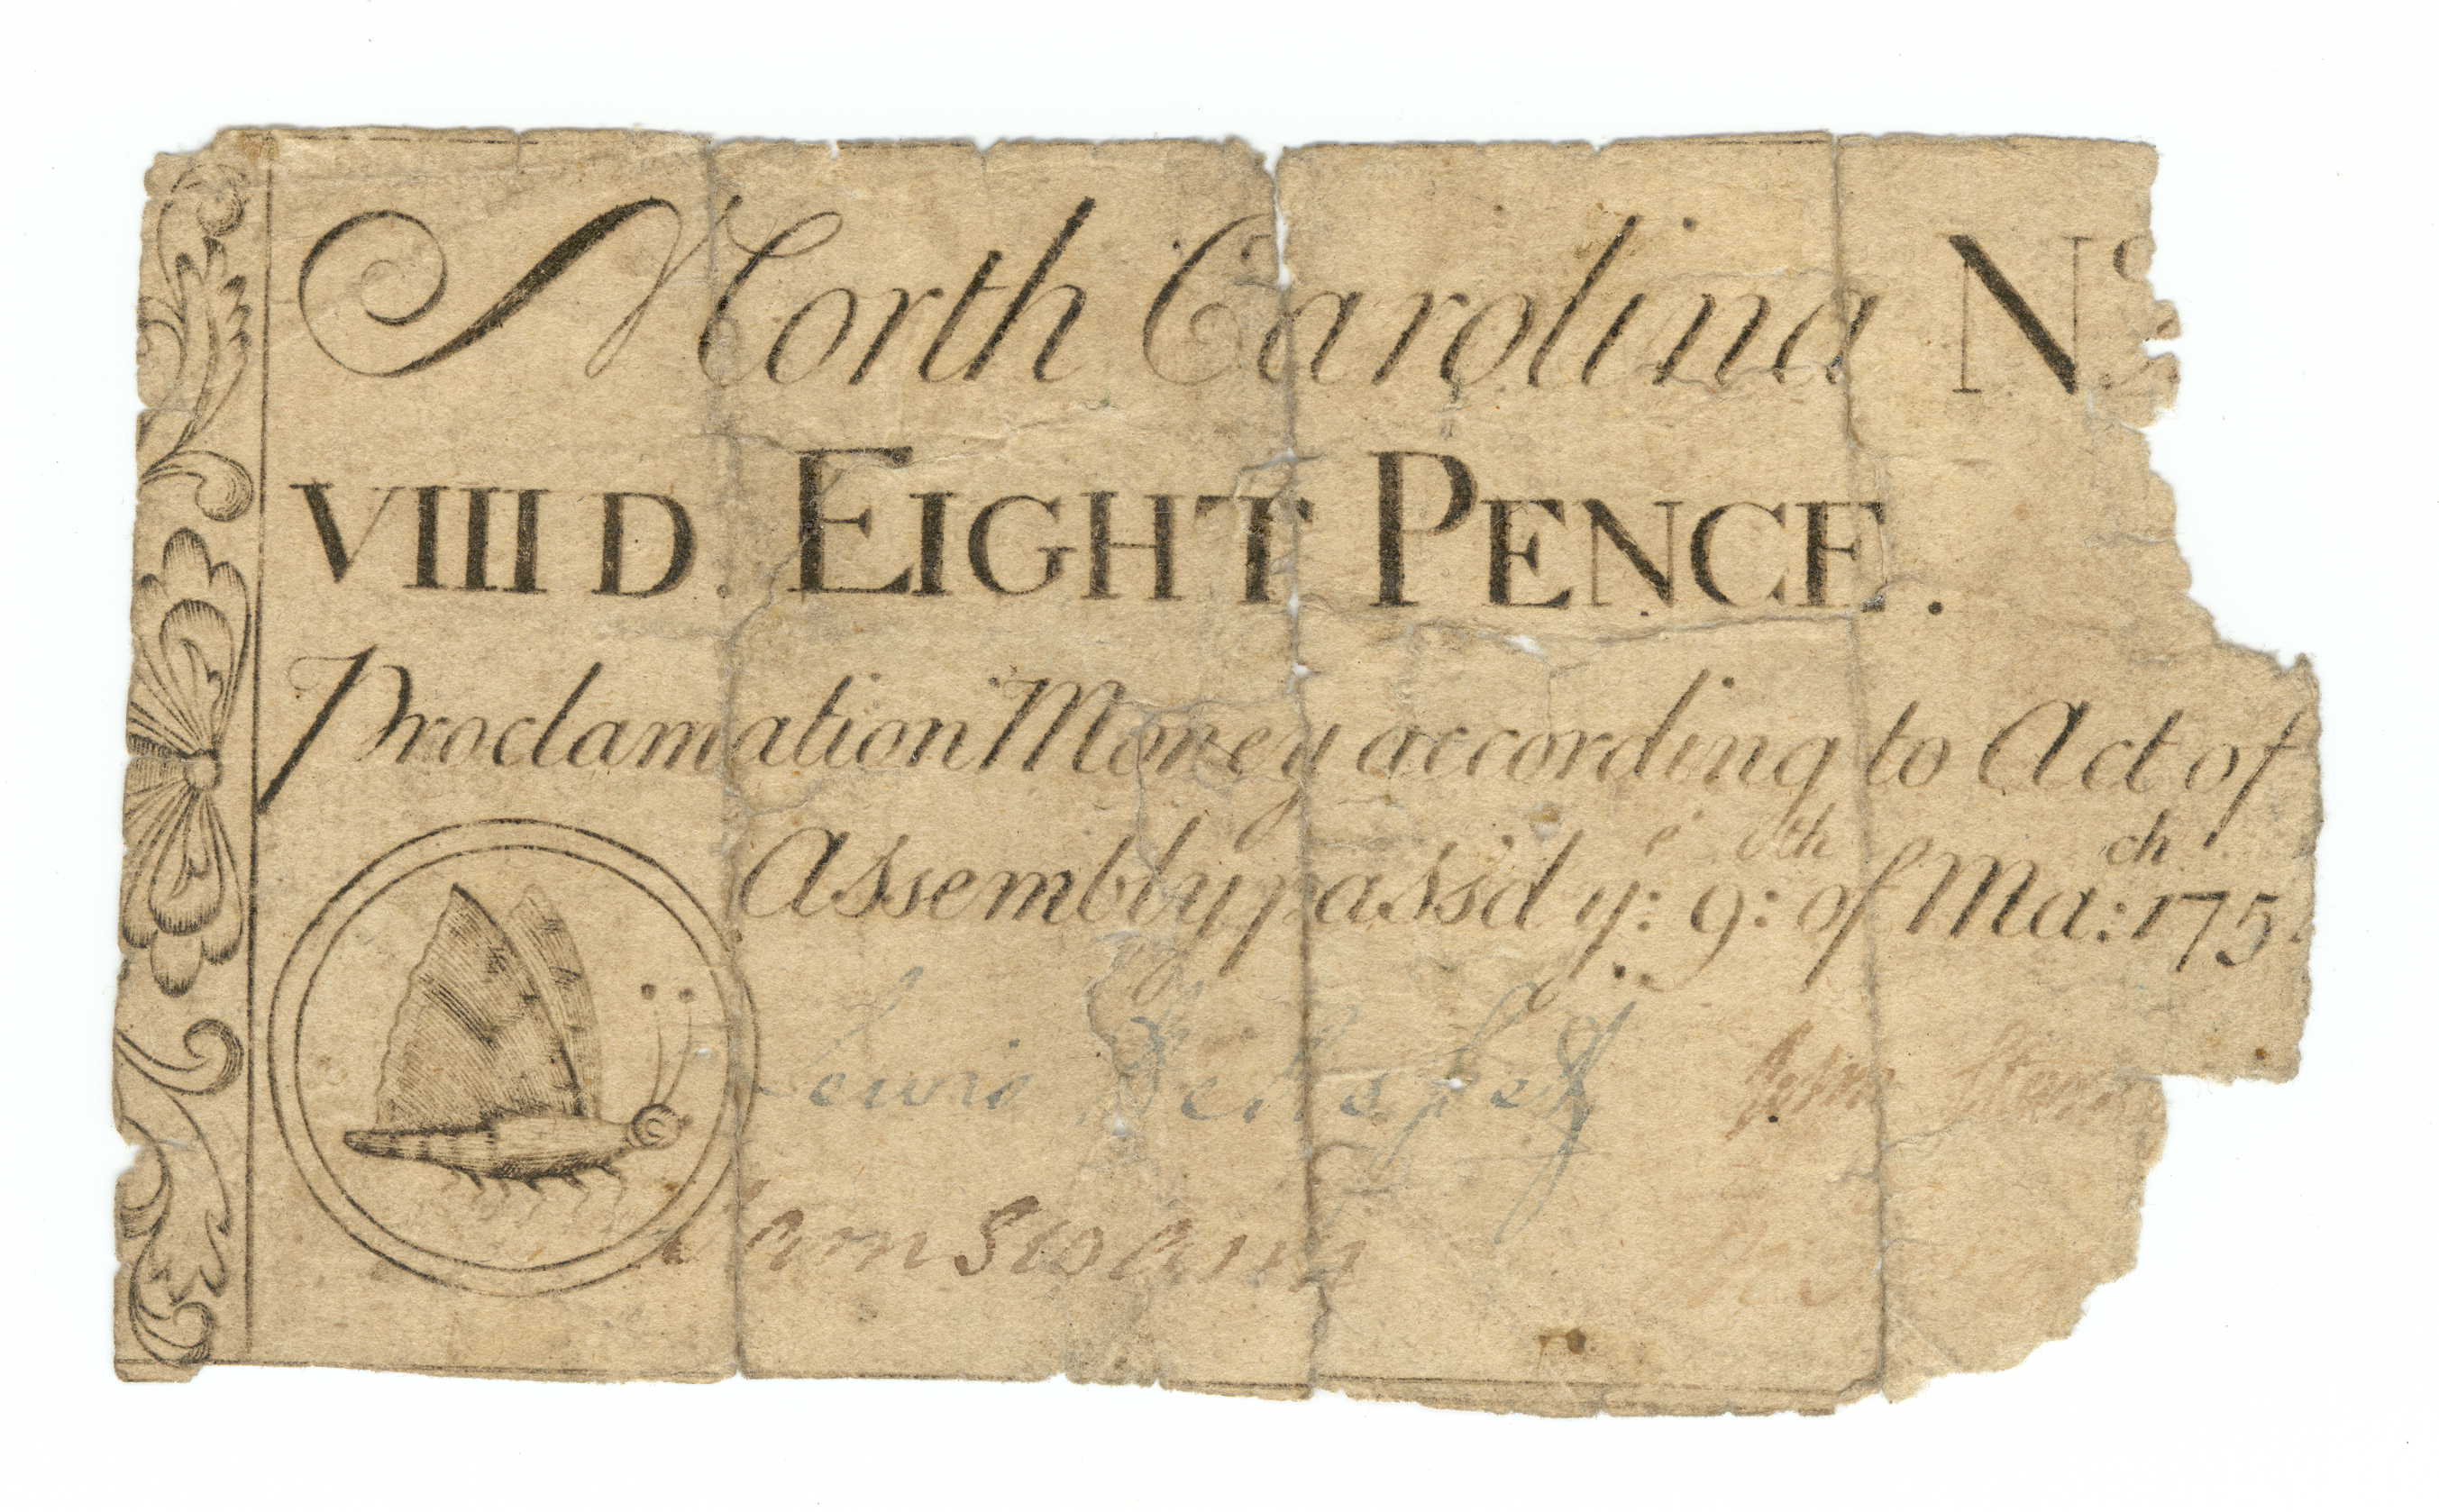 North Carolina Nº
VIII D. EIGHT PENCE.
Proclamation Money according to Act of
Assembly pass'd yͤ: 9ᵗʰ: of Maᶜʰ: 175
Lewis DeRosset John
Sam Swann